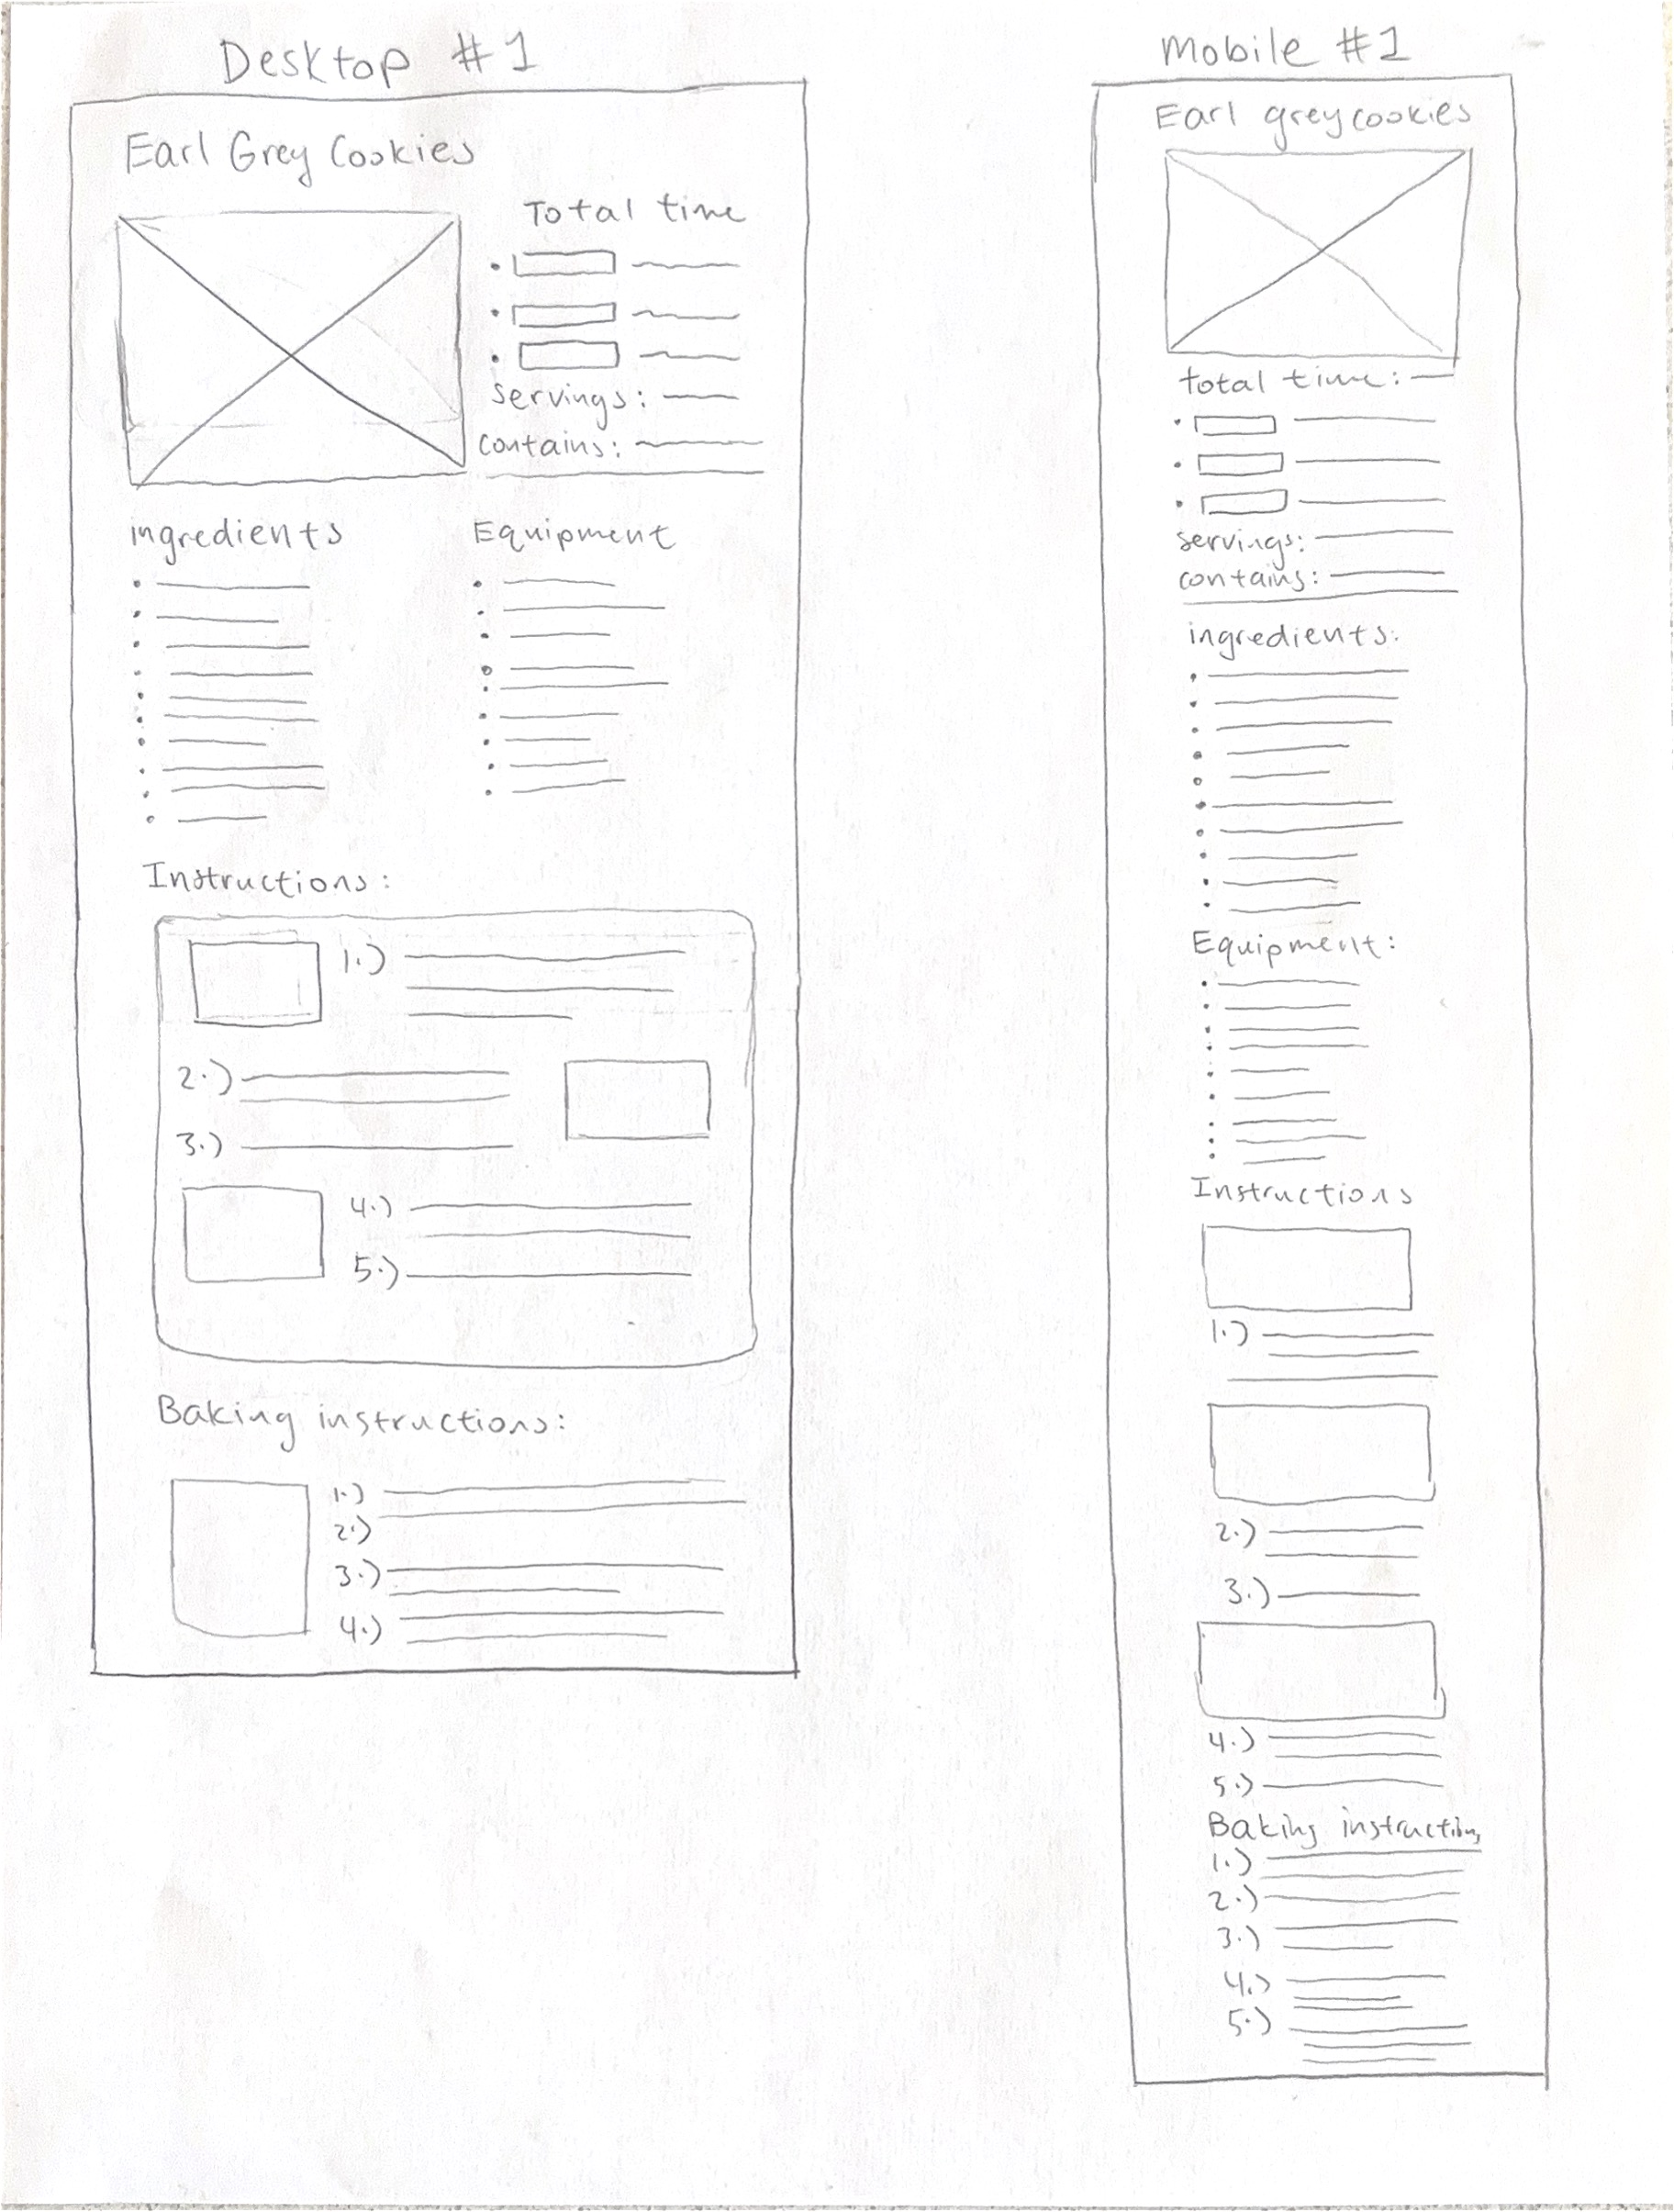 Desktop #1
Earl Grey Cookies
Total time
servings:
contains:
ingredients
Equipment
Instructions:
1.)
2.)
3.)
4.)
5.)
Baking instructions:
1.)
2.)
3.)
4.)
Mobile #1
Earl grey cookies
total time:
servings:
contains:
ingredients:
Equipment:
Instructions
1.)
2.)
3.)
4.)
5.)
Baking instructions
1.)
2.)
3.)
4.)
5.)